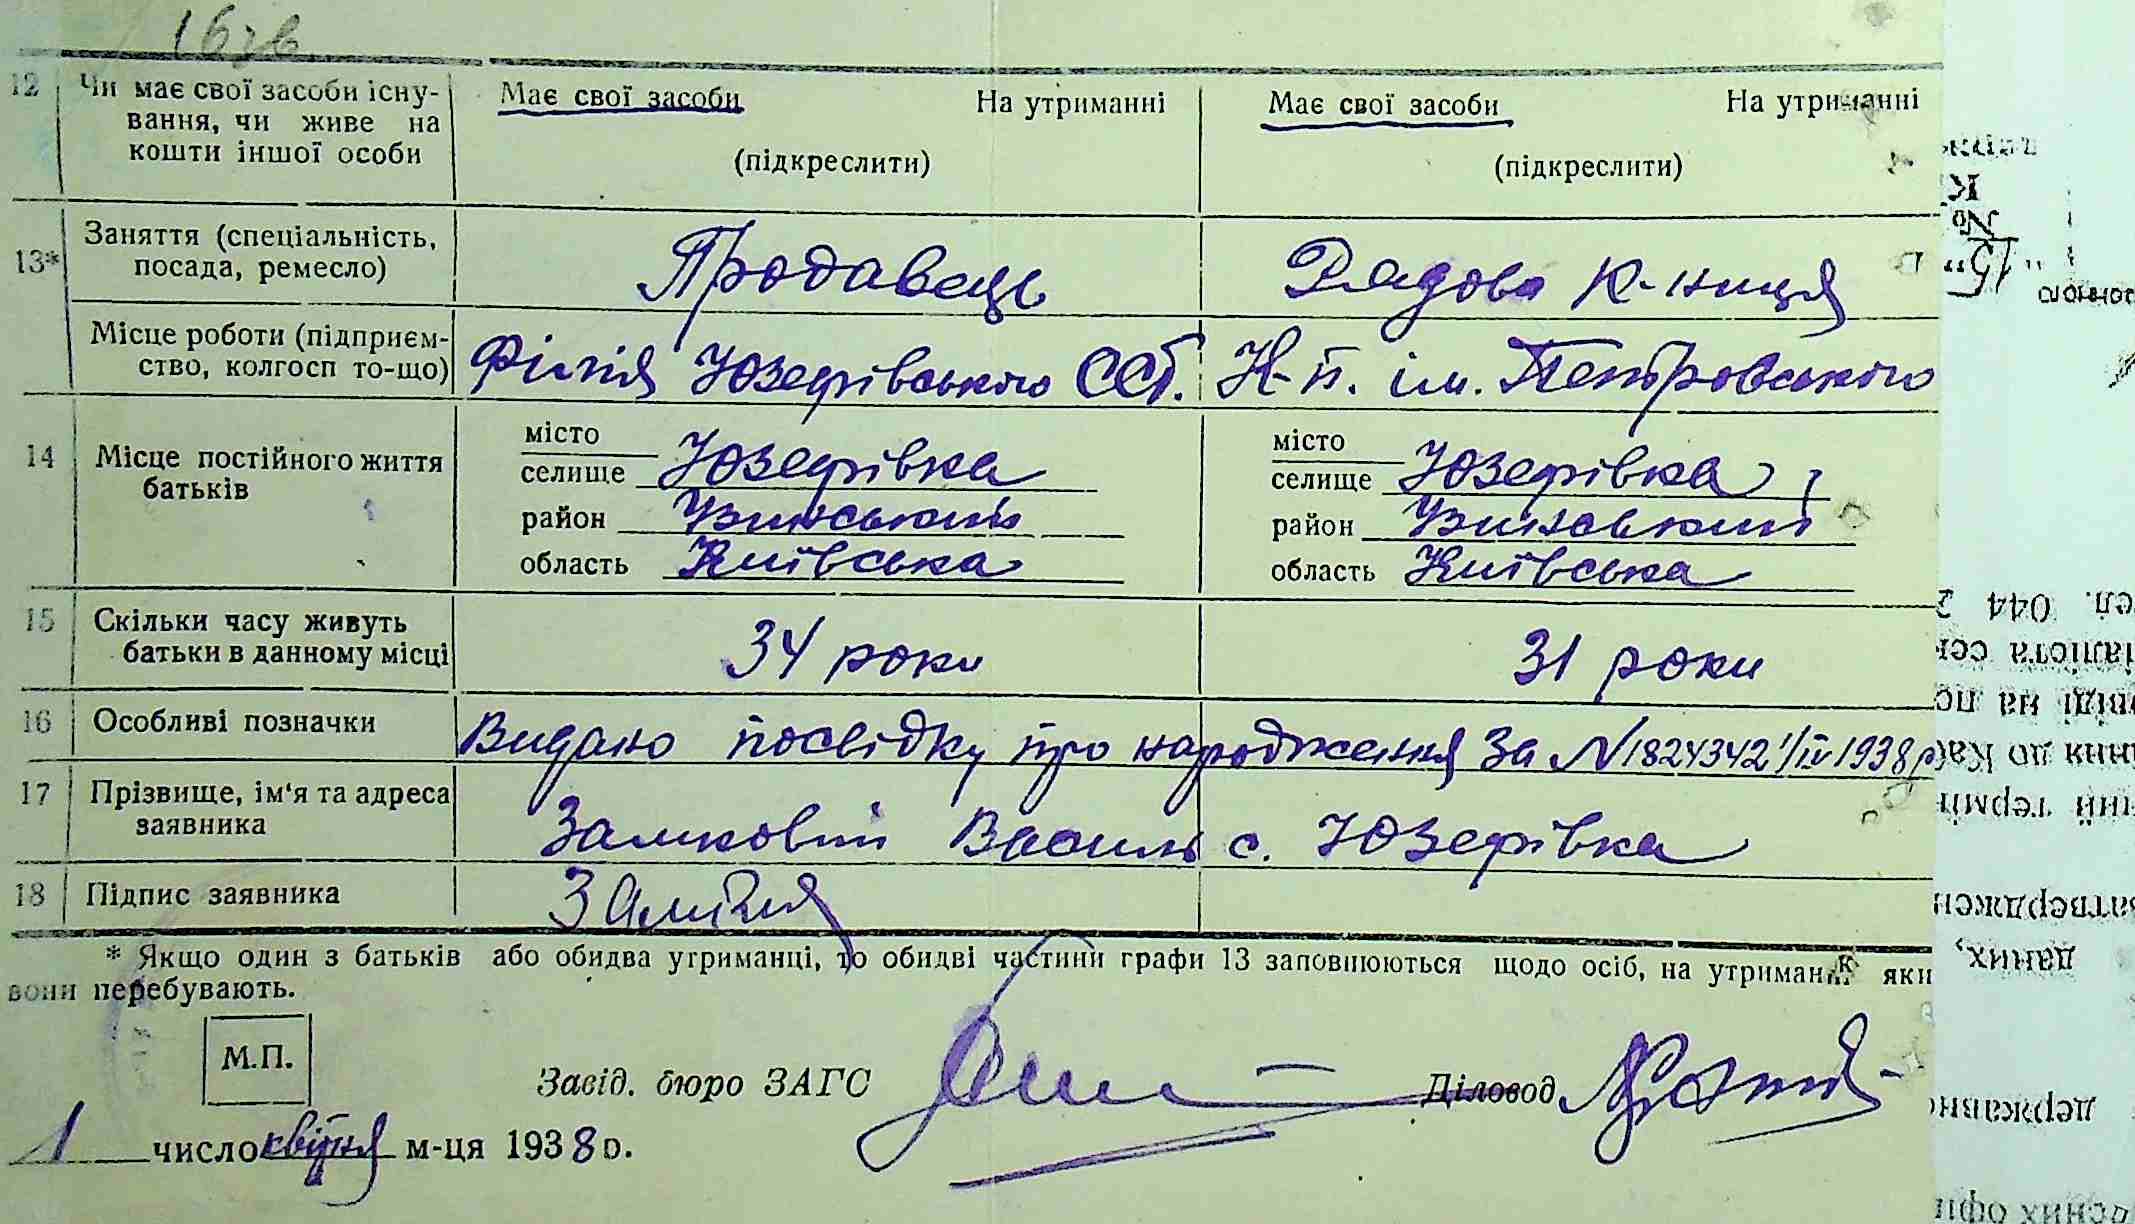 16зв
12 Чи має свої засоби існу- Має свої засоби На утриманні Має свої засоби На утриманні
вання, чи живе на
кошти іншої особи (підкреслити) (підкреслити)
13* Заняття (спеціальність, Продавець Рядова К-ниця
посада, ремесло)
Місце роботи (підприєм- Філія Юзефівського ССТ. К-п. ім. Петровського
ство, колгосп то-що)
14 Місце постійного життя місто місто
батьків селище Юзефівка селище Юзефівка
район район
область Київська область Київська
15 Скільки часу живуть 34 роки 31 роки
батьки в данному місці
16 Особливі позначки Видано посвідку про народження за N 1824342 1/IV 1938 р
17 Прізвище, ім'я та адреса Замковий Василь с. Юзефівка
заявника
18 Підпис заявника
* Якщо один з батьків або обидва утриманці, то обидві частини графи 13 заповнюються щодо осіб, на утриманні яки
вони перебувають.
М.П.
Завід. бюро ЗАГС Діловод
1 число квітня м-ця 1938 р.